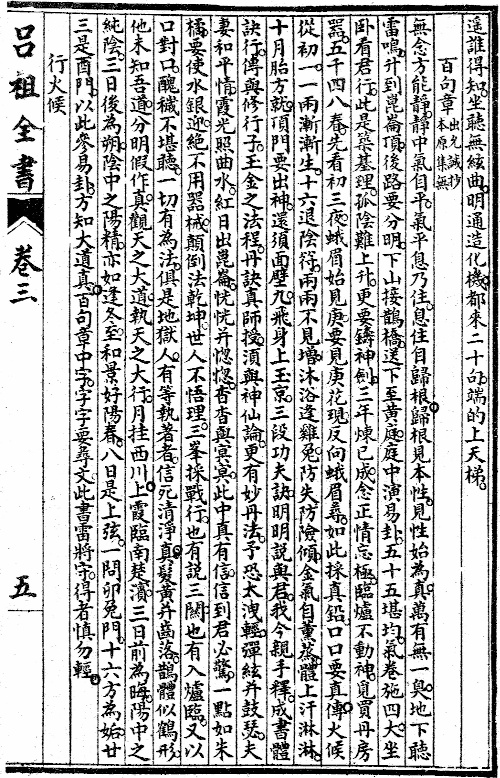 遥誰得知坐聽無絃曲明通造化機都來二十句端的上天梯
百句章出允誠抄本原集無
無念方能靜靜中氣自平氣平息乃住息住自歸根歸根見本性見性始為真萬有無一臭地下聽
雷鳴升到崑崙頂後路要分明下山接鵲橋送下至黃庭庭中演易卦五十五堪均氣卷施四大坐
卧看君行此是築基理孤陰難上升更要鑄神劍三年煉已成念正情忘極臨爐不動神見買丹房
器五千四八春先看初三夜蛾眉始見庚要見庚花現反向蛾眉尋如此採真鉛口口要真傳火候
從初一一兩漸漸生十六退陰符兩兩不見增沐浴逢雞兔防失防險傾金氣自薫蒸體上汗淋淋
十月胎方就頂門要出神還須面壁九飛身上玉京三段功夫訣明明説與君我今親手釋成書體
訣行傳與修行子玉金之法程丹訣真師授須與神仙論更有妙丹法予恐太洩輕彈絃并鼓瑟夫
妻和平情霞光照曲水紅日出崑崙恍恍并惚惚杳杳與冥冥此中真有信信到君必驚一點如朱
橘要使水銀迎絶不用器械顛倒法乾坤世人不悟理三峯採戰行也有説三關也有入爐臨又以
口對口醜穢不堪聽一切有為法俱是地獄人有等執著者信死清淨真髮黄并齒落鵲體似鶴形
他未知吾道分明假作真觀天之大道執天之大行月挂西川上霞臨南楚濵三日前為晦陽中之
純陰三日後為朔陰中之陽精亦如逢冬至和景好陽春八日是上弦一問卯兔門十六方為姤廿
三是酉門以此參易卦方知大道真百句章中字字字要尋文此書雷將守得者慎勿輕
行火候
呂祖全書 卷三 五